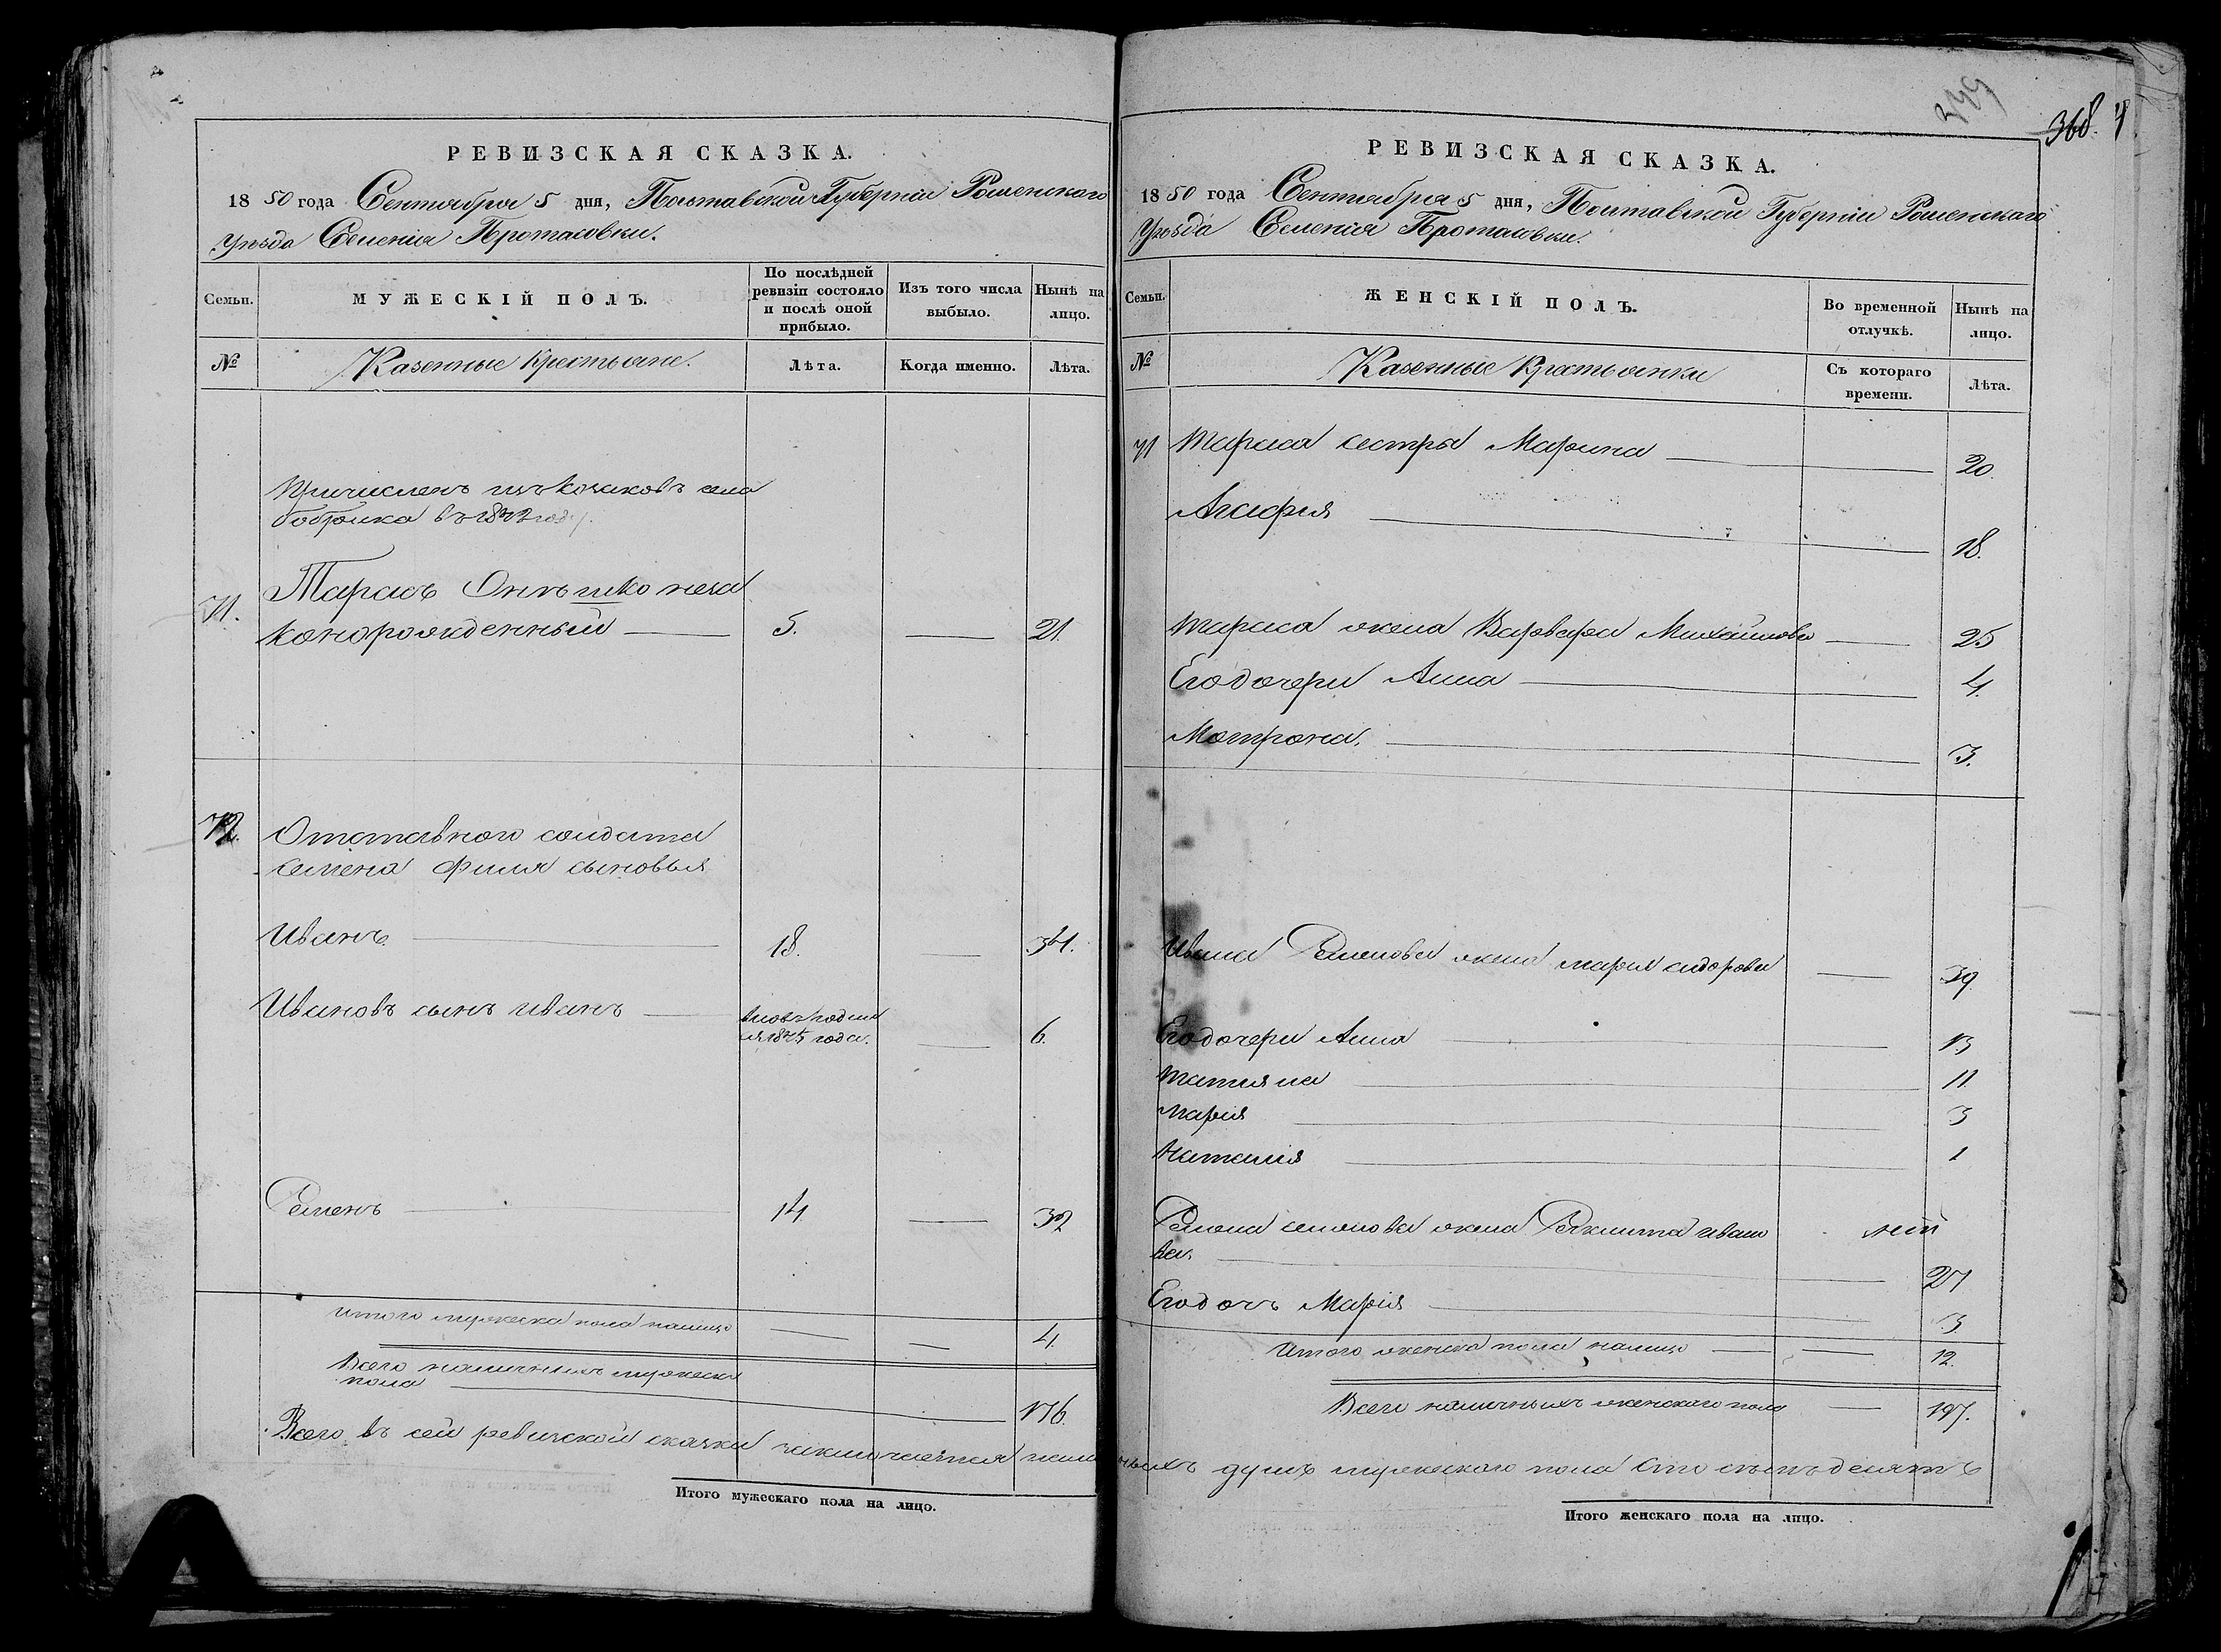 РЕВИЗСКАЯ СКАЗКА.
1850 года Сентября 5 дня, Полтавской Губерніи Роменскаго
Уѣзда Селенія Протасовки.
Семьи.
МУЖЕСКІЙ ПОЛЪ.
По послѣдней ревизіи состояло и послѣ оной прибыло.
Изъ того числа выбыло.
Нынѣ на лицо.
№
Казенные Крестьяне.
Лѣта.
Когда именно.
Лѣта.
Причисленъ изъ козаковъ села
бобрика въ году.
71. Тарасъ Онъшко неза
конорожденный 5. 21.
72. Отставного солдата
Семена Филя сыновья
Иванъ 18. 34.
Ивановъ сынъ иванъ 6.
года.
Семенъ 14. 32
Итого мужеска пола налицо 4.
Всего наличныхъ мужеска
пола 176.
Всего въ сей ревизской сказки заключается налич
Итого мужескаго пола на лицо.
368.
РЕВИЗСКАЯ СКАЗКА.
1850 года Сентября 5 дня, Полтавской Губерніи Роменскаго
Уѣзда Селенія Протасовки.
Семьи.
ЖЕНСКІЙ ПОЛЪ.
Во временной отлучкѣ.
Нынѣ на лицо.
№
Казенные Крестьянки
Съ котораго времени.
Лѣта.
71 Тараса сестра Марина 20.
Агафия 18.
Тараса жена Варвара Михайлова 25
Его дочери Анна 4.
Мотрона. 3.
Ивана Семенова жена мария сидорова 39
Его дочери Анна 13
Татияна 11
Мария 3
Наталия 1
Семена семенова жена ивано
ва. 27
Его дочь Марія 3
Итого женска пола налицо 12.
Всего наличныхъ женскаго пола 197.
ныхъ душъ мужескаго пола Сто семьдесятъ
Итого женскаго пола на лицо.